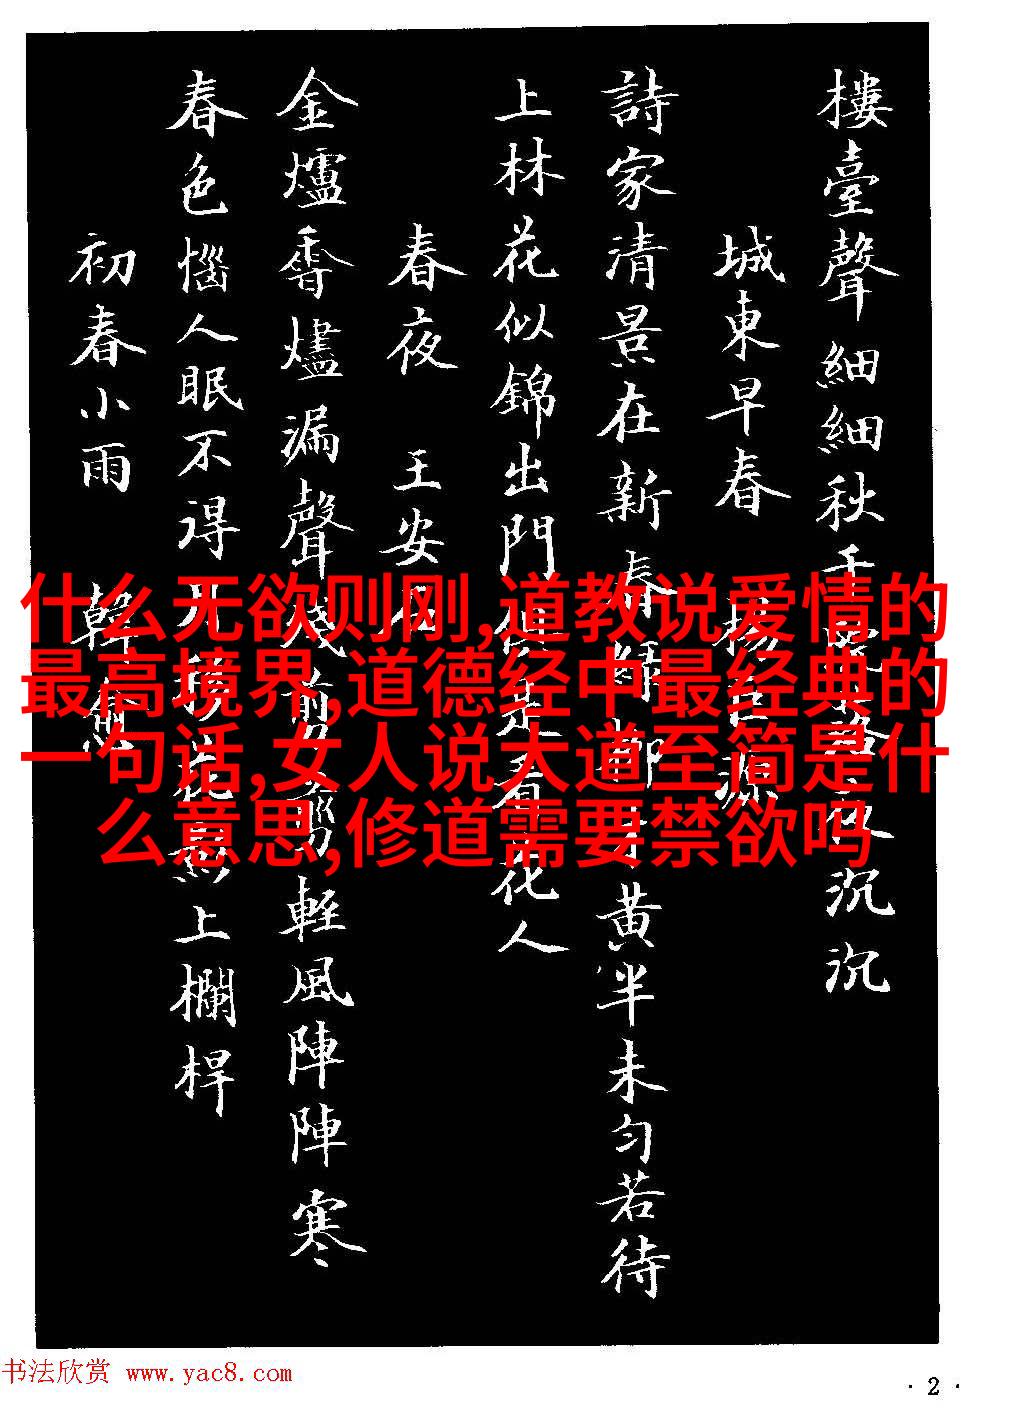 樓臺聲細細秋千沉沉
城東早春 楊巨源
詩家清景在新春黄半未匀若待
上林花似錦出門俱是看花人
春夜 王安石
金爐香燼漏聲殘輕風陣陣寒
春色惱人眠不得月移花上欄桿
初春小雨 韓愈
什么无欲则刚,道教说爱情的
最高境界,道德经中最经典的
一句话,女人说大道至简是什
么意思,修道需要禁欲吗
书法欣赏 www.yac8.com
·2·